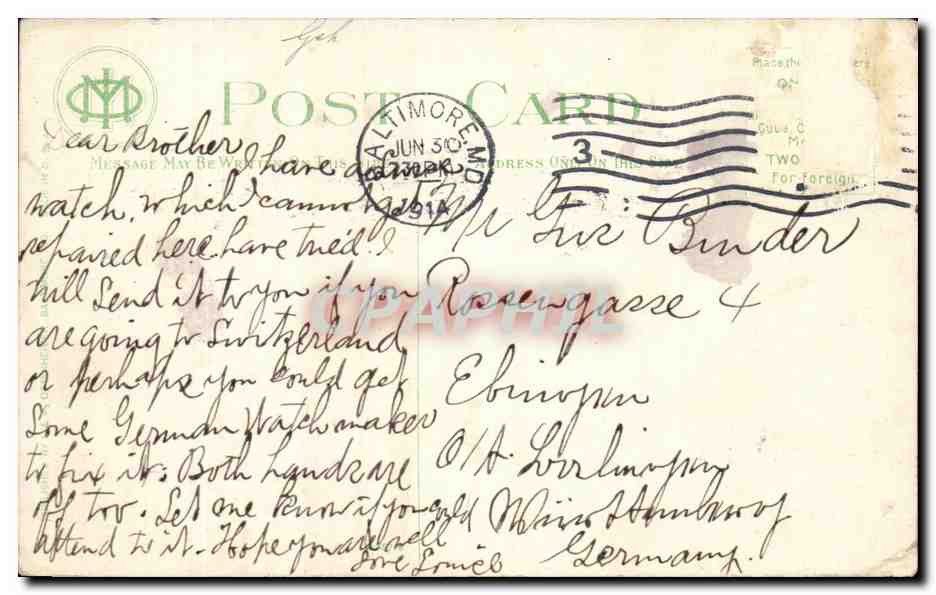 POST CARD
MESSAGE MAY BE WRITTEN ON THIS SIDE
ADDRESS ONLY ON THIS SIDE
Place the
TWO
For foreign
BALTIMORE, MD.
JUN 30
730 PM
1914
3
Dear Brother,
I have a
watch, which I cannot get
repaired here. have tried. I
will send it to you if you
are going to Switzerland
or perhaps you could get
some German Watchmaker
to fix it. Both hands are
off too. Let me know if you could
attend to it. Hope you are well
Love
Mr Binder
Rossengasse 4
Ebingen
O/A.
Württemberg
Germany.
CPAPHIL